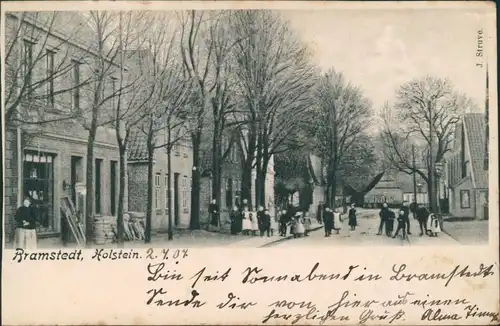 J. Struve.
Bramstedt, Holstein. 2.4.07
Bin seit Sonnabend in Bramstedt.
Sende dir von hier aus einen
herzlichen Gruß. Alma